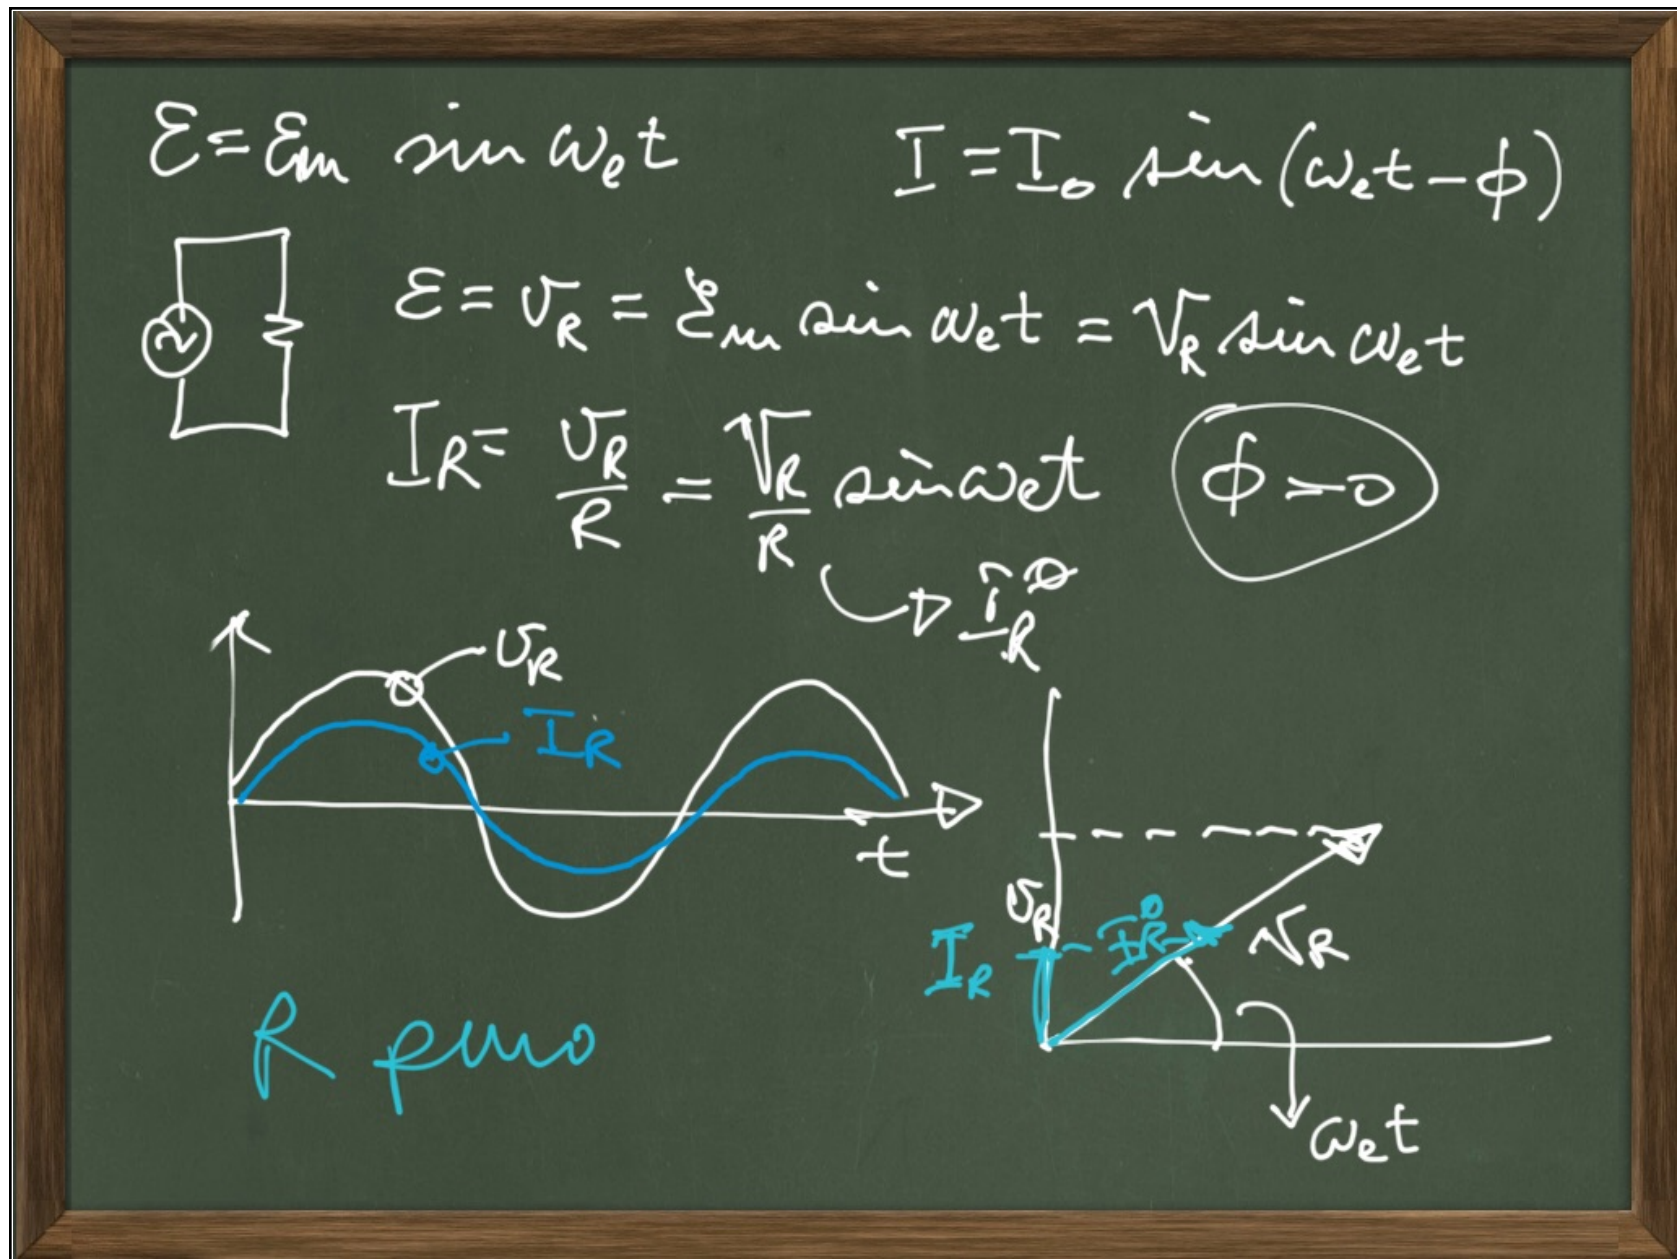 ℰ = ℰm sin ωet
I = I0 sin(ωet − ϕ)
ℰ = vR = ξm sin ωet = VR sin ωet
IR = vR/R = VR/R sin ωet
ϕ = 0
I0R
vR
IR
t
vR
IR
I0R
VR
ωet
R puro